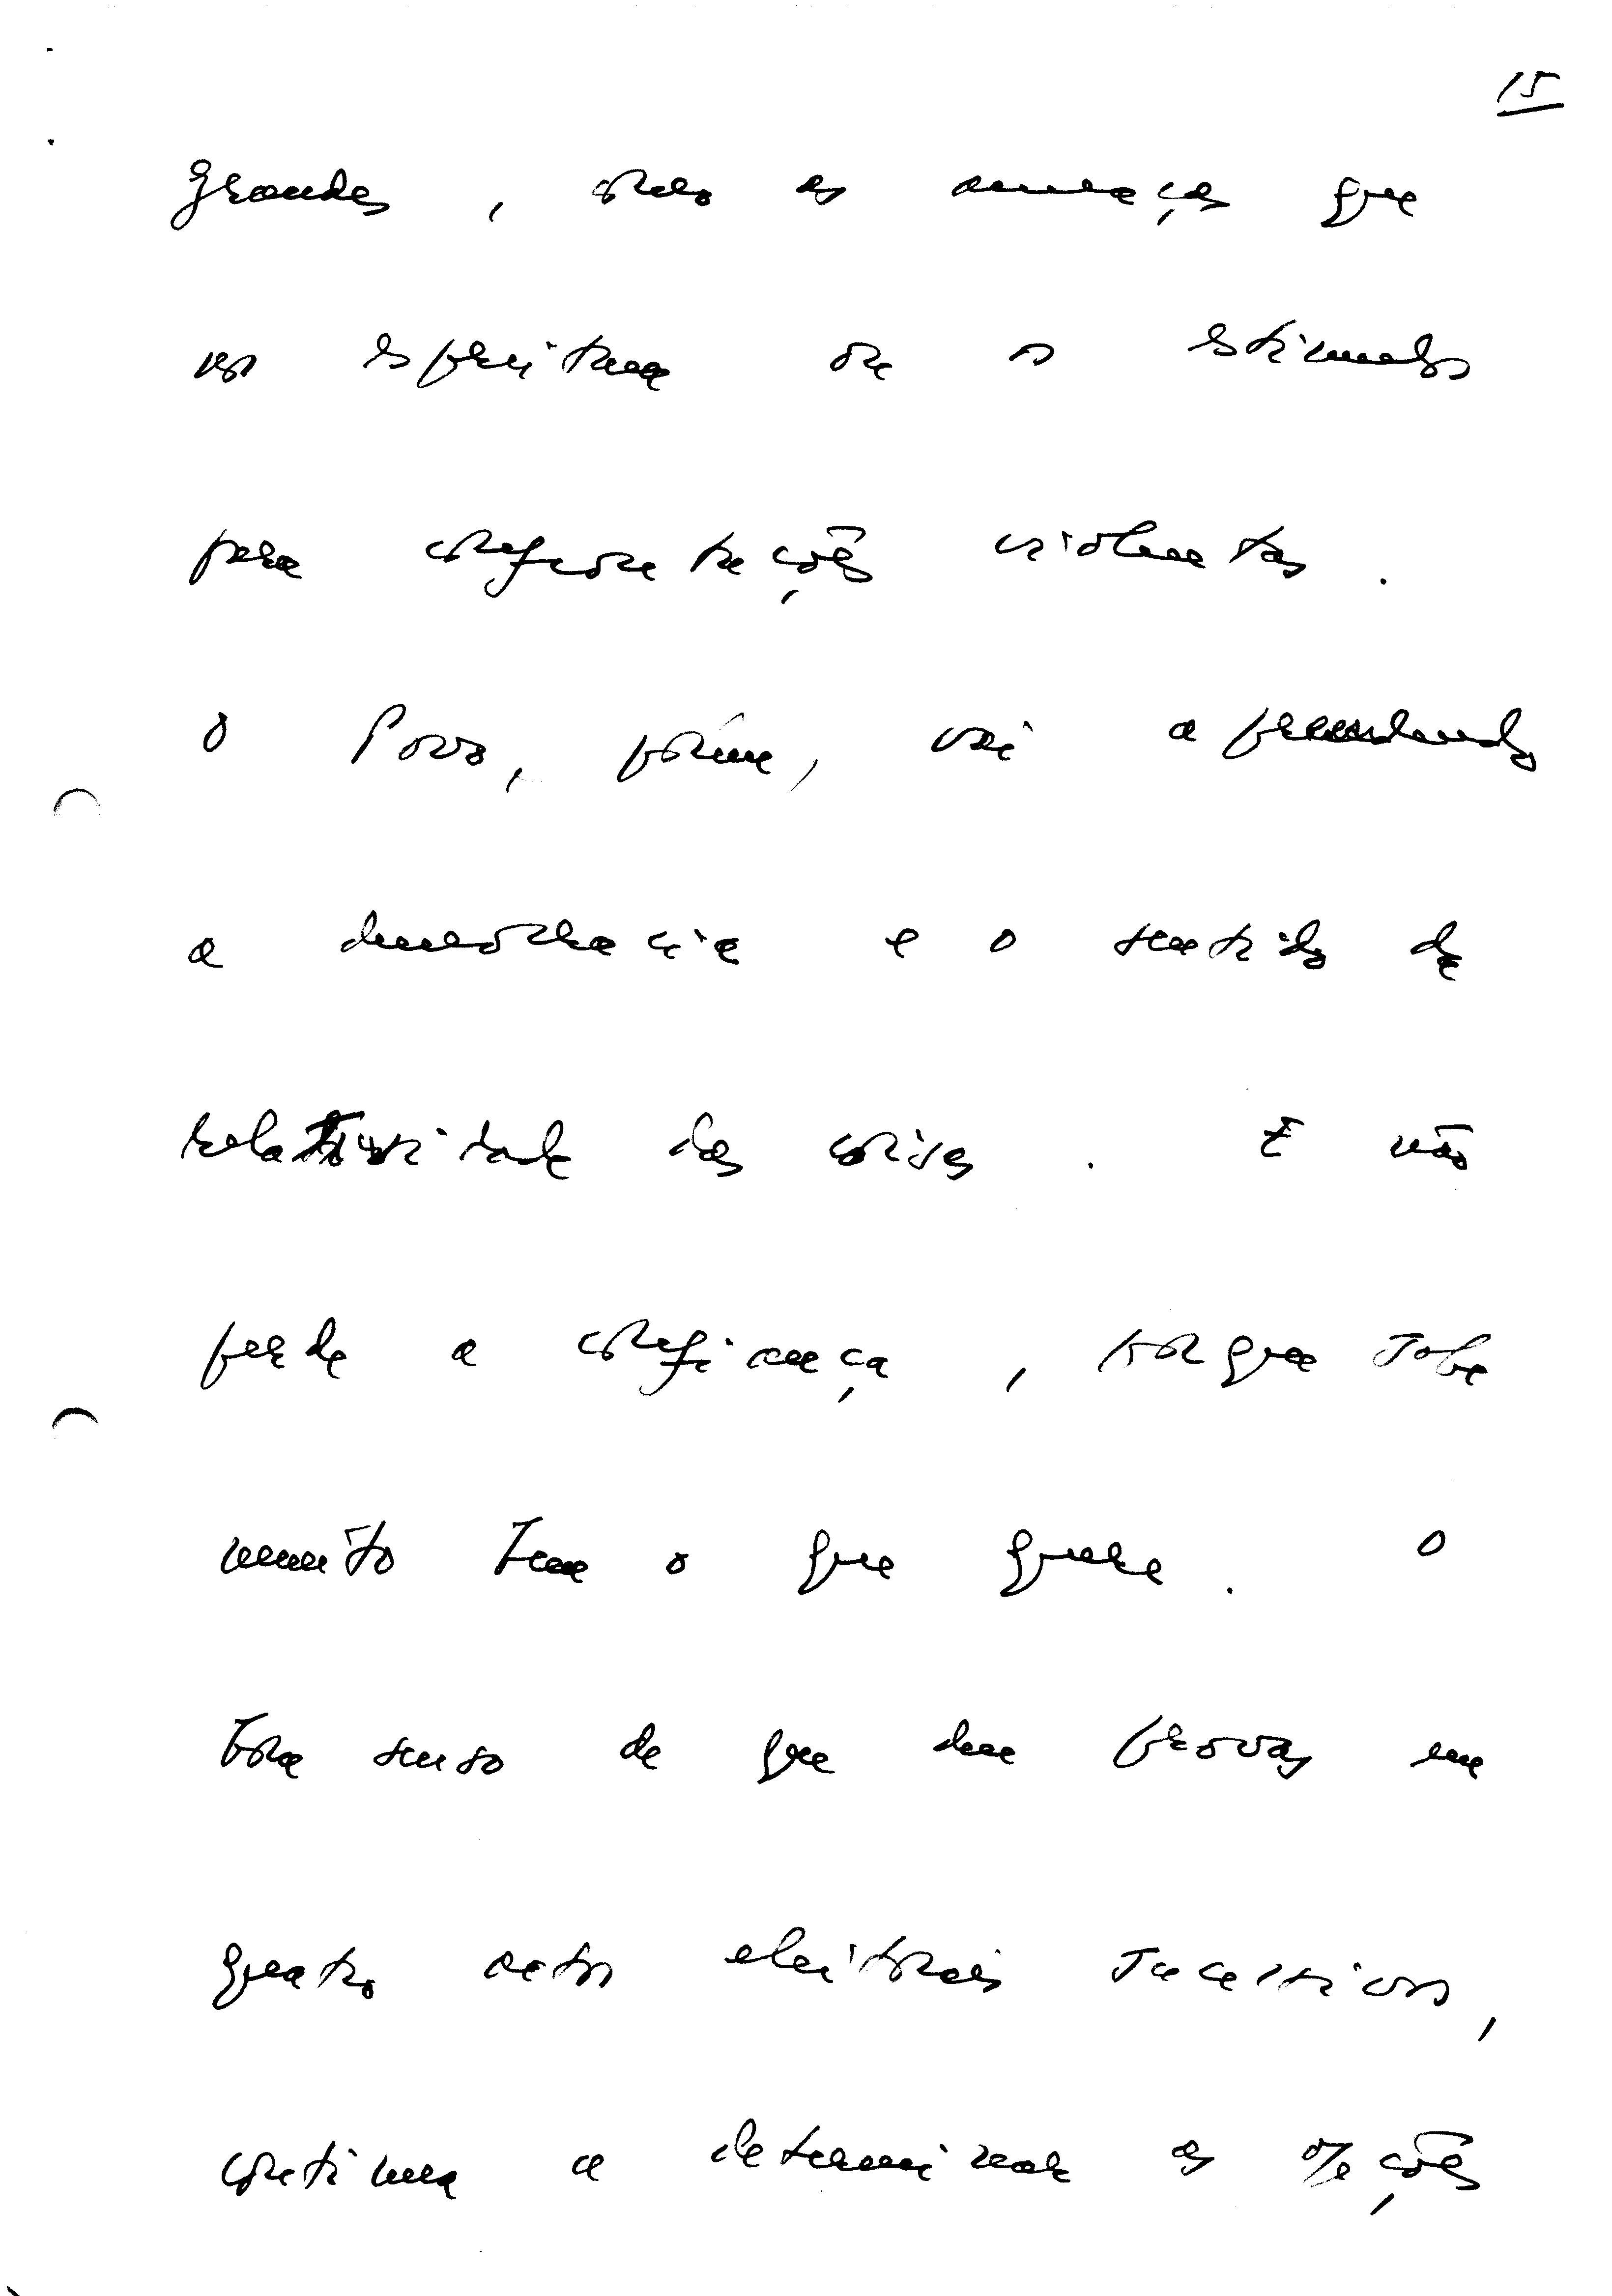 15
grandes, são as ameaças que
nos espreitam ou o estímulo
para confrontações violentas.
O Povo, porém, vai aprendendo
a democracia e o sentido da
relatividade das coisas. E não
perde a confiança, porque sabe
muito bem o que quer. O
bom senso de que deu provas em
quatro actos eleitorais sucessivos,
continua a determinar as opções